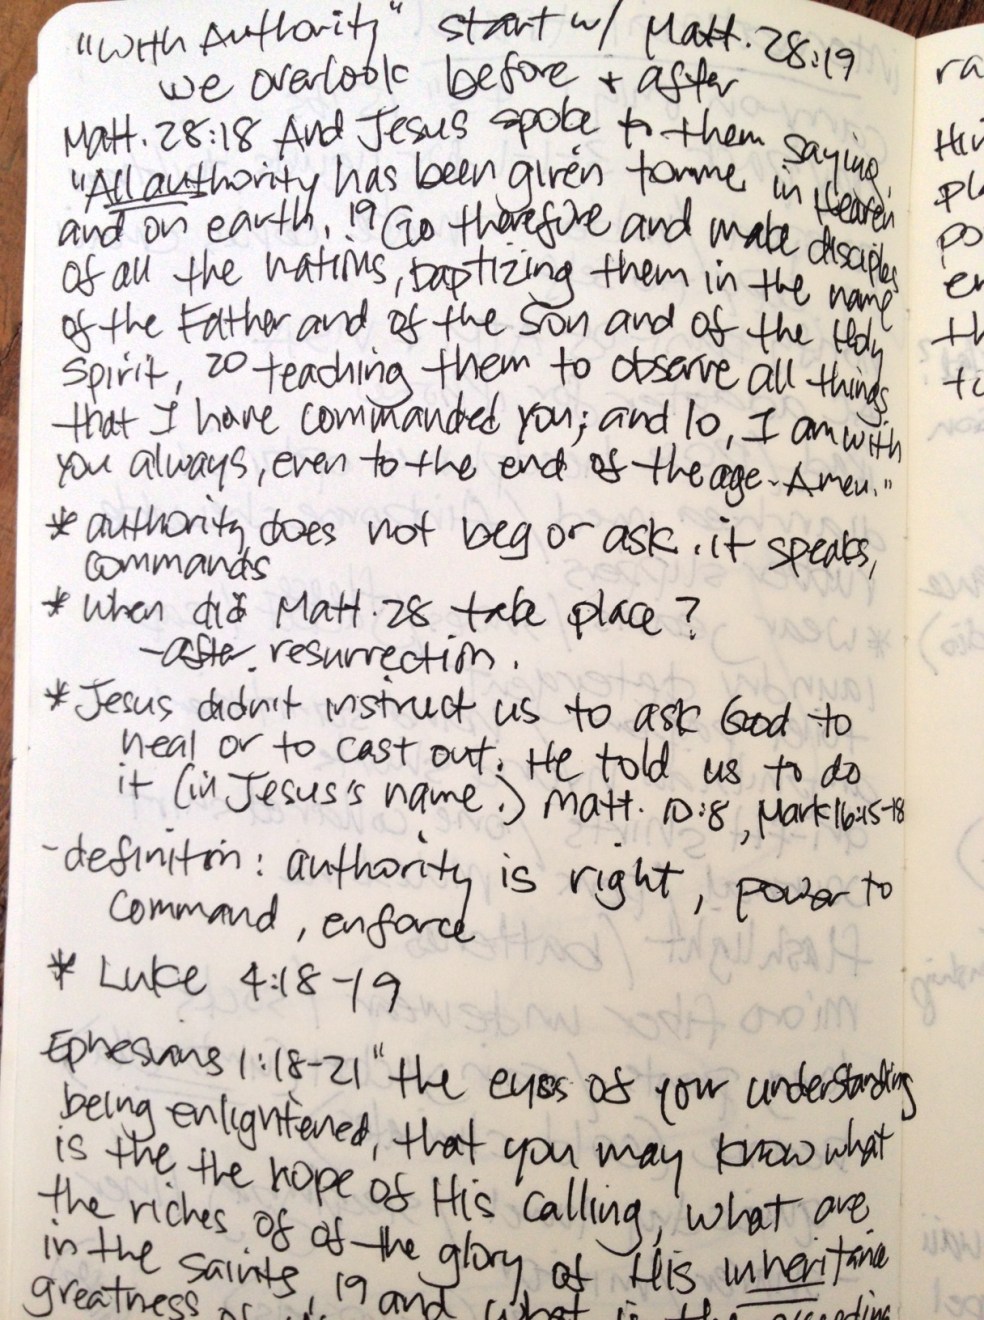 "With Authority" start w/ Matt. 28:19
we overlook before + after
Matt. 28:18 And Jesus spoke to them saying,
"All authority has been given to me in Heaven
and on earth. 19 Go therefore and make disciples
of all the nations, baptizing them in the name
of the Father and of the Son and of the Holy
Spirit, 20 teaching them to observe all things
that I have commanded you; and lo, I am with
you always, even to the end of the age - Amen."
* authority does not beg or ask. it speaks,
commands
* When did Matt. 28 take place?
- after resurrection.
* Jesus didn't instruct us to ask God to
heal or to cast out. He told us to do
it (in Jesus's name.) Matt. 10:8, Mark 16:15-18
- definition: authority is right, power to
command, enforce
* Luke 4:18-19
Ephesians 1:18-21 "the eyes of your understanding
being enlightened, that you may know what
is the the hope of His calling, what are
the riches of of the glory of His inheritance
in the saints, 19 and what is the exceeding
greatness of
ra